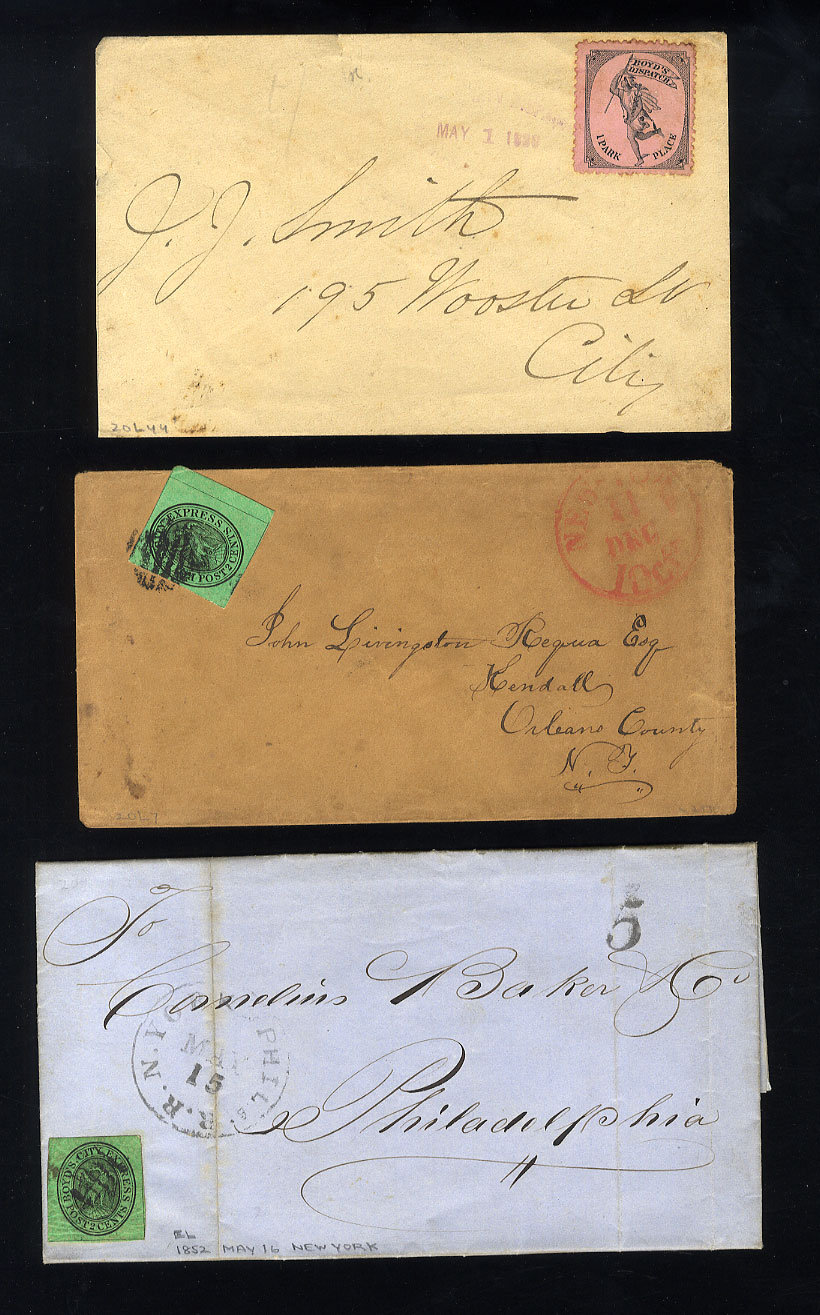 BOYD'S
DISPATCH
1 PARK PLACE
MAY 1
J. J. Smith
195 Wooster St
City
20L44
EXPRESS
POST 2 CENTS
DEC
10 Cts
John Livingston Requa Esq
Kendall
Orleans County
N. Y.
20L7
To
5
Cornelius Baker & Co
Philadelphia
R. N. YORK PHILA
15
BOYD'S CITY EXPRESS
POST 2 CENTS
EL
1852 MAY 16 NEW YORK